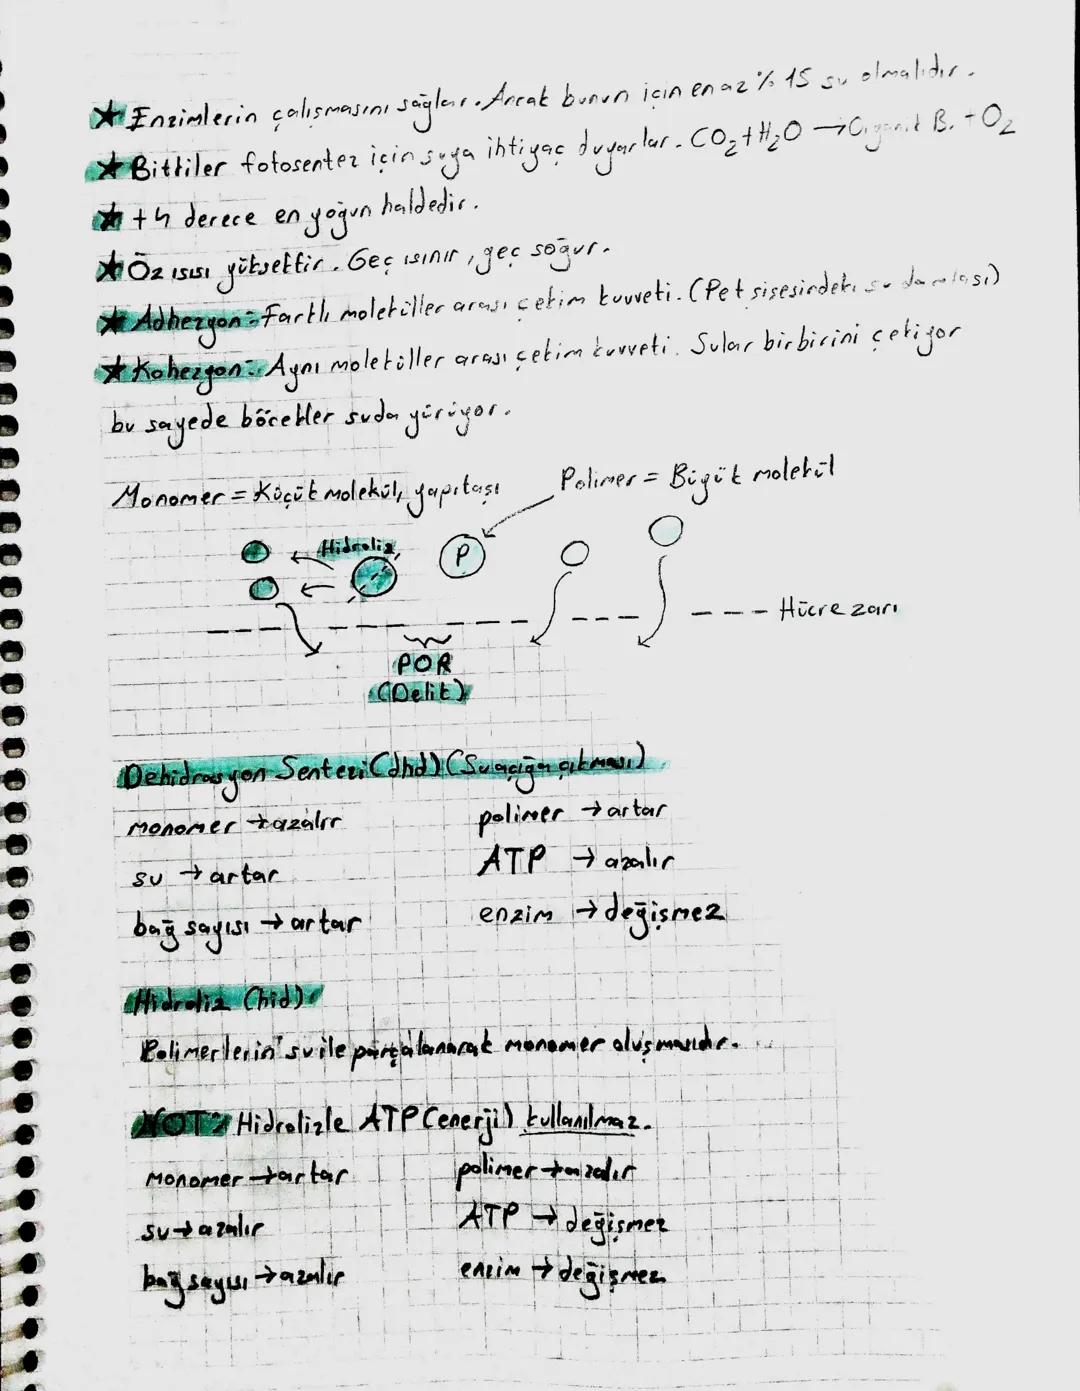 ★ Enzimlerin çalışmasını sağlar. Ancak bunun için en az % 15 su olmalıdır.
★ Bitkiler fotosentez için suya ihtiyaç duyarlar. CO₂ + H₂O → Organik B. + O₂
★ +4 derece en yoğun haldedir.
★ Öz ısısı yüksektir. Geç ısınır, geç soğur.
★ Adhezyon: Farklı moleküller arası çekim kuvveti. (Pet şişesindeki su damlası)
★ Kohezyon: Aynı moleküller arası çekim kuvveti. Sular birbirini çekiyor
bu sayede böcekler suda yürüyor.
Monomer = Küçük molekül, yapıtaşı
Polimer = Büyük molekül
Hidroliz
P
Hücre zarı
POR
(Delik)
Dehidrasyon Sentezi (dhd) (Su açığa çıkması)
monomer → azalır polimer → artar
su → artar ATP → azalır
bağ sayısı → artar enzim → değişmez
Hidroliz (hid)
Polimerlerin su ile parçalanarak monomer oluşmasıdır.
NOT: Hidrolizle ATP (enerji) kullanılmaz.
monomer → artar polimer → azalır
su → azalır ATP → değişmez
bağ sayısı → azalır enzim → değişmez